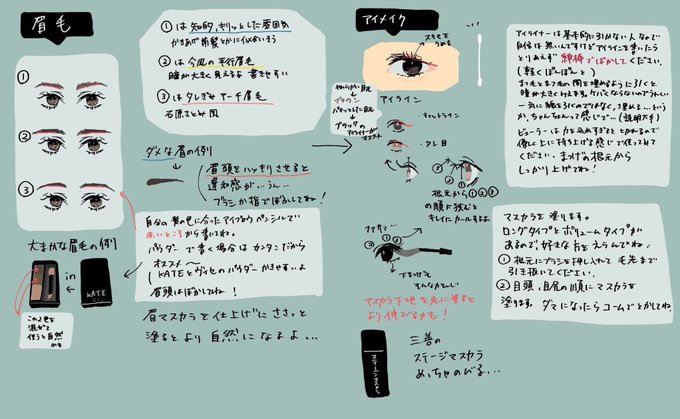 眉毛
① は 知的、キリッとした雰囲気
かきあげ前髪とかに似合いそう
② は 今風の平行眉毛
瞳が大きく見えるよ 書きやすい
③ は タレぎみ アーチ眉毛
石原さとみ風
①
②
③
大まかな眉毛の例
ダメな眉の例
眉頭をハッキリさせると
違和感が…うん…
ブラシか指でぼかしてね!
自分の髪の色に合ったアイブロウペンシルで
赤いところから書いてね。
パウダーで書く場合はカンタンだから
オススメ〜
(KATEとヴィセのパウダーかきやすいよ
眉頭はぼかしてね!
in
KATE
この2色を
混ぜて
使うと自然
かも
眉マスカラを仕上げにささっと
塗るとより自然になるよ…
アイメイク
スキマを
うめる
やわらかい目
↓
ブラウン
パキッとした目
↓
ブラックの
アイライナーが
オススメ
アイライン
キャットライン
タレ目
① ② ③
根元から①②③
の順に挟むと
キレイにカールするよ
マスカラ
① ②
下まつげも
そんなかんじ
マスカラ下地を先に塗ると
より伸びるかも!
三善の
ステージマスカラ
めっちゃのびる…
ステージマスカラ
アイライナーは基本的に引かない人なので
自信は無いんですけどアイラインを書いたら
とりあえず綿棒でぼかしてください。
(軽くぽんぽんと)
まつ毛とまつ毛の間を埋めるように引くと
瞳が大きくみえます。ケバくならないのでうれしい
一気に線を引くのではなく、埋める…という
か、ちょんちょんって感じで…(説明下手)
ビューラーは力を込めすぎると切れるので
優しく上に持ち上げる感じで使ってみて
ください。まつげの根元から
しっかり上げてね!
マスカラを塗ります。
ロングタイプとボリュームタイプが
あるので、好きな方をえらんでね!
① 根元にブラシを押し入れて 毛先まで
引き抜いてください。
② 目頭、目尻の順にマスカラを
塗ります。ダマになったらコームでとかしてね。